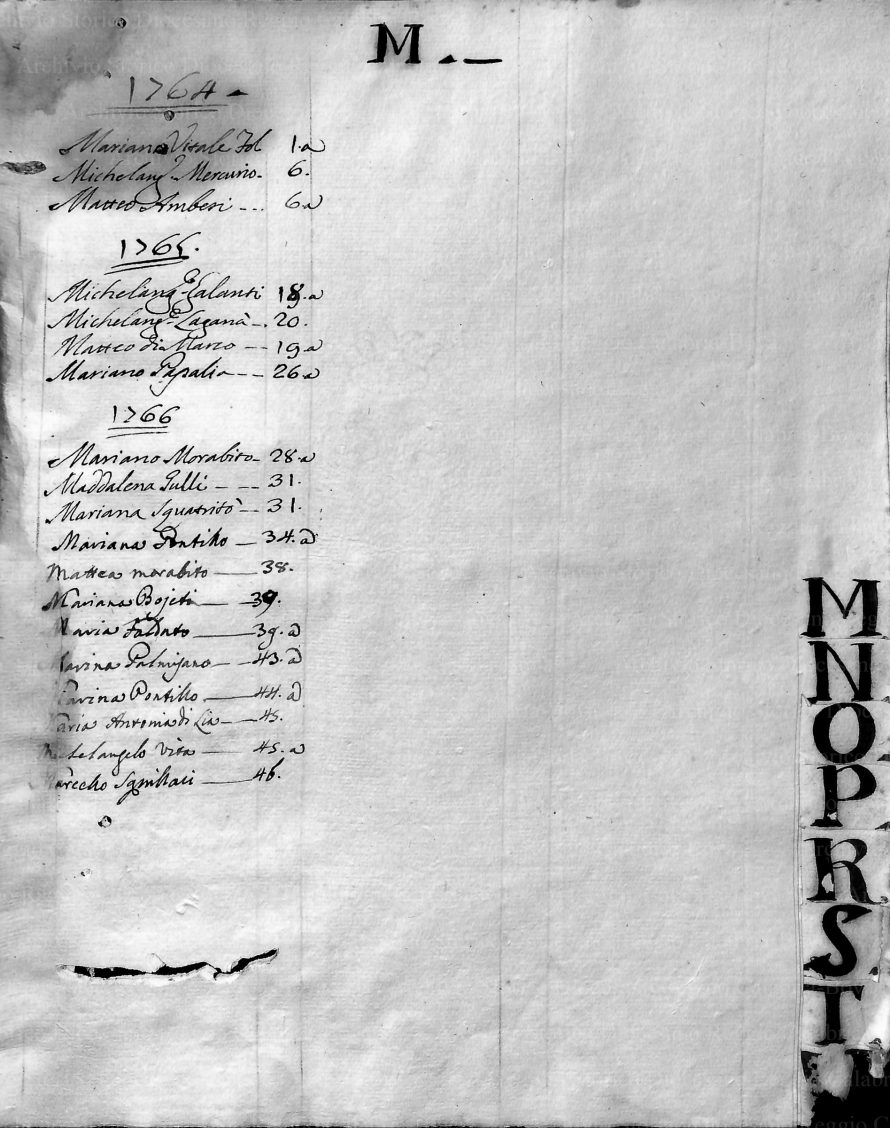 M. —
1764
Mariano Vitale Fol 1.a
Michelang.o Mercurio 6.
Matteo Amberi --- 6.a
1765.
Michelang.o Galanti 19.a
Michelang.o Laganà -. 20.
Matteo di Marco -- 19.a
Mariano Papalia -- 26.a
1766
Mariano Morabito - 28.a
Maddalena Gulli - -- 31.
Mariana Squatritò -- 31.
Mariana Pontillo — 34.a
Mattea morabito — 38.
Mariana Bojeti — 39.
Maria Faldato — 39.a
Marina Palmisano — 43.a
Marina Pontillo — 44.a
Maria Antonia di Lia — 45.
Michelangelo Vita — 45.a
Marcello Sgrillaci — 46.
M
N
O
P
R
S
T